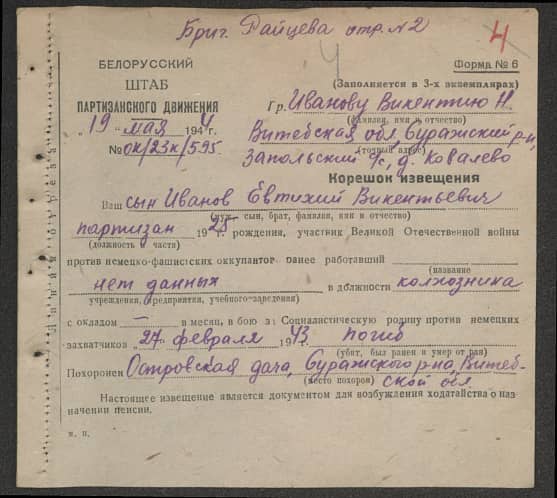 Бриг. Райцева отр. № 2
4
4
БЕЛОРУССКИЙ
ШТАБ
ПАРТИЗАНСКОГО ДВИЖЕНИЯ
„19" мая 1944 г.
№ ок/23к/595
Форма № 6
(Заполняется в 3-х экземплярах)
Гр. Иванову Викентию Н.
(фамилия, имя и отчество)
Витебская обл, Суражский р-н,
(точный адрес)
Запольский с/с, д. Ковалево
Корешок извещения
Ваш сын Иванов Евтихий Викентьевич
(муж, сын, брат, фамилия, имя и отчество)
партизан 1925 г. рождения, участник Великой Отечественной войны
(должность в части)
против немецко-фашистских оккупантов ранее работавший
(название
нет данных в должности колхозника
учреждения, предприятия, учебного заведения)
с окладом — в месяц, в бою за Социалистическую родину против немецких
захватчиков „27" февраля 1943 погиб
(убит, был ранен и умер от ран)
Похоронен Островская дача, Суражского р-на, Витеб-
(место похорон) ской обл.
Настоящее извещение является документом для возбуждения ходатайства о наз
начении пенсии.
м. п.